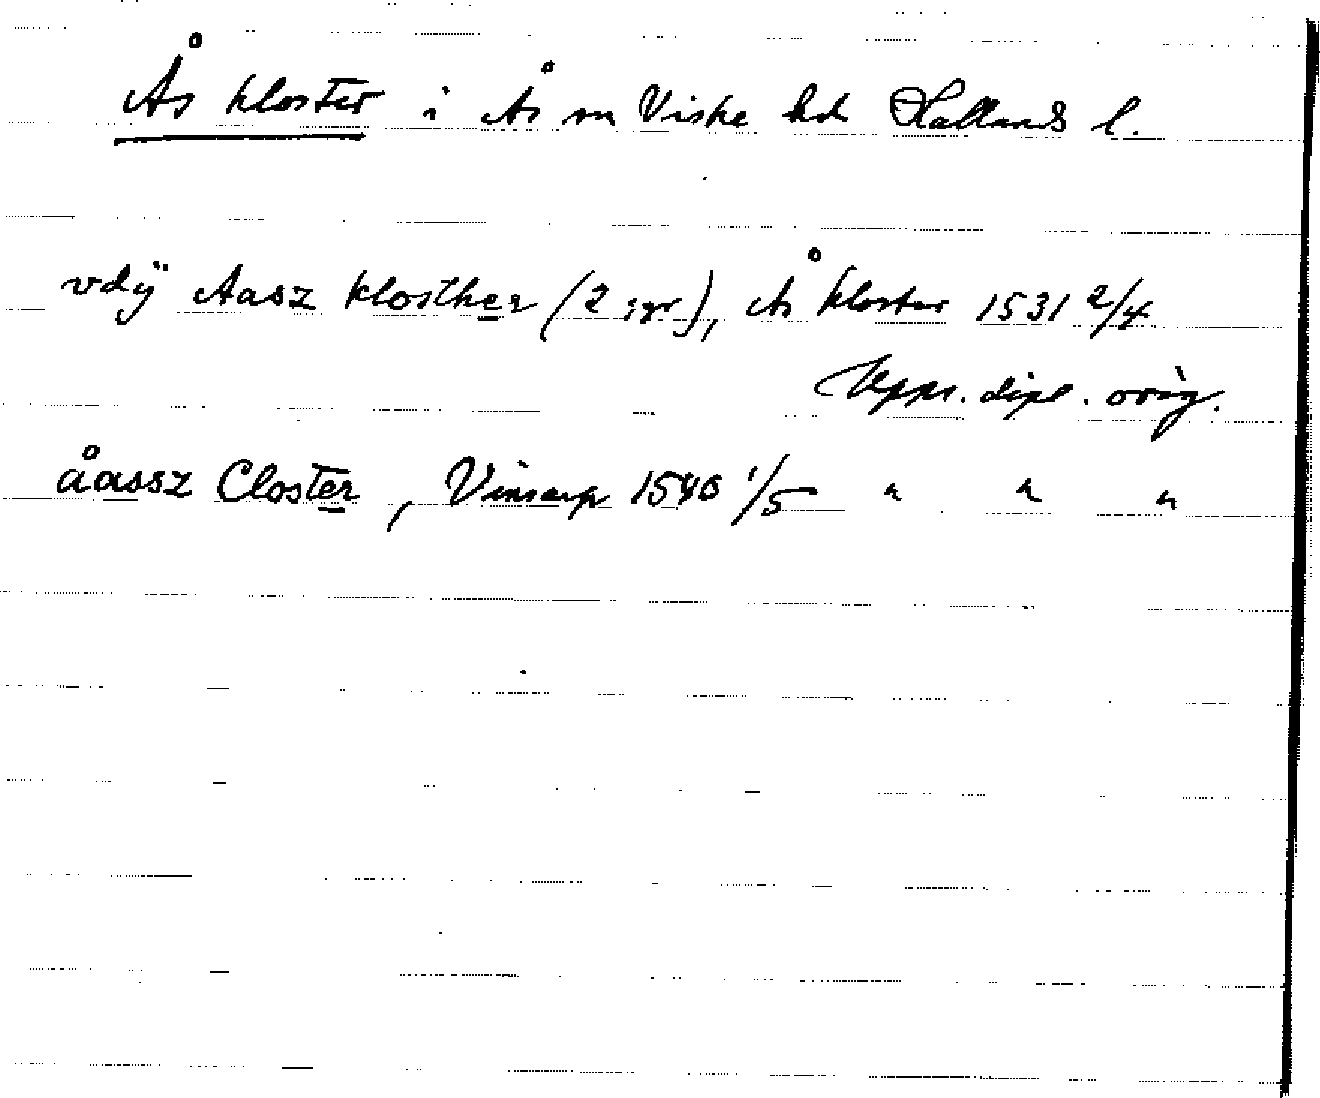 Ås kloster i Ås sn Viske hd Hallands l.
vdÿ Aasz klosther (2 ggr), Ås kloster 1531 2/4
Upps. dipl. orig.
åassz Closter, Vinsarp 1540 1/5 " " "